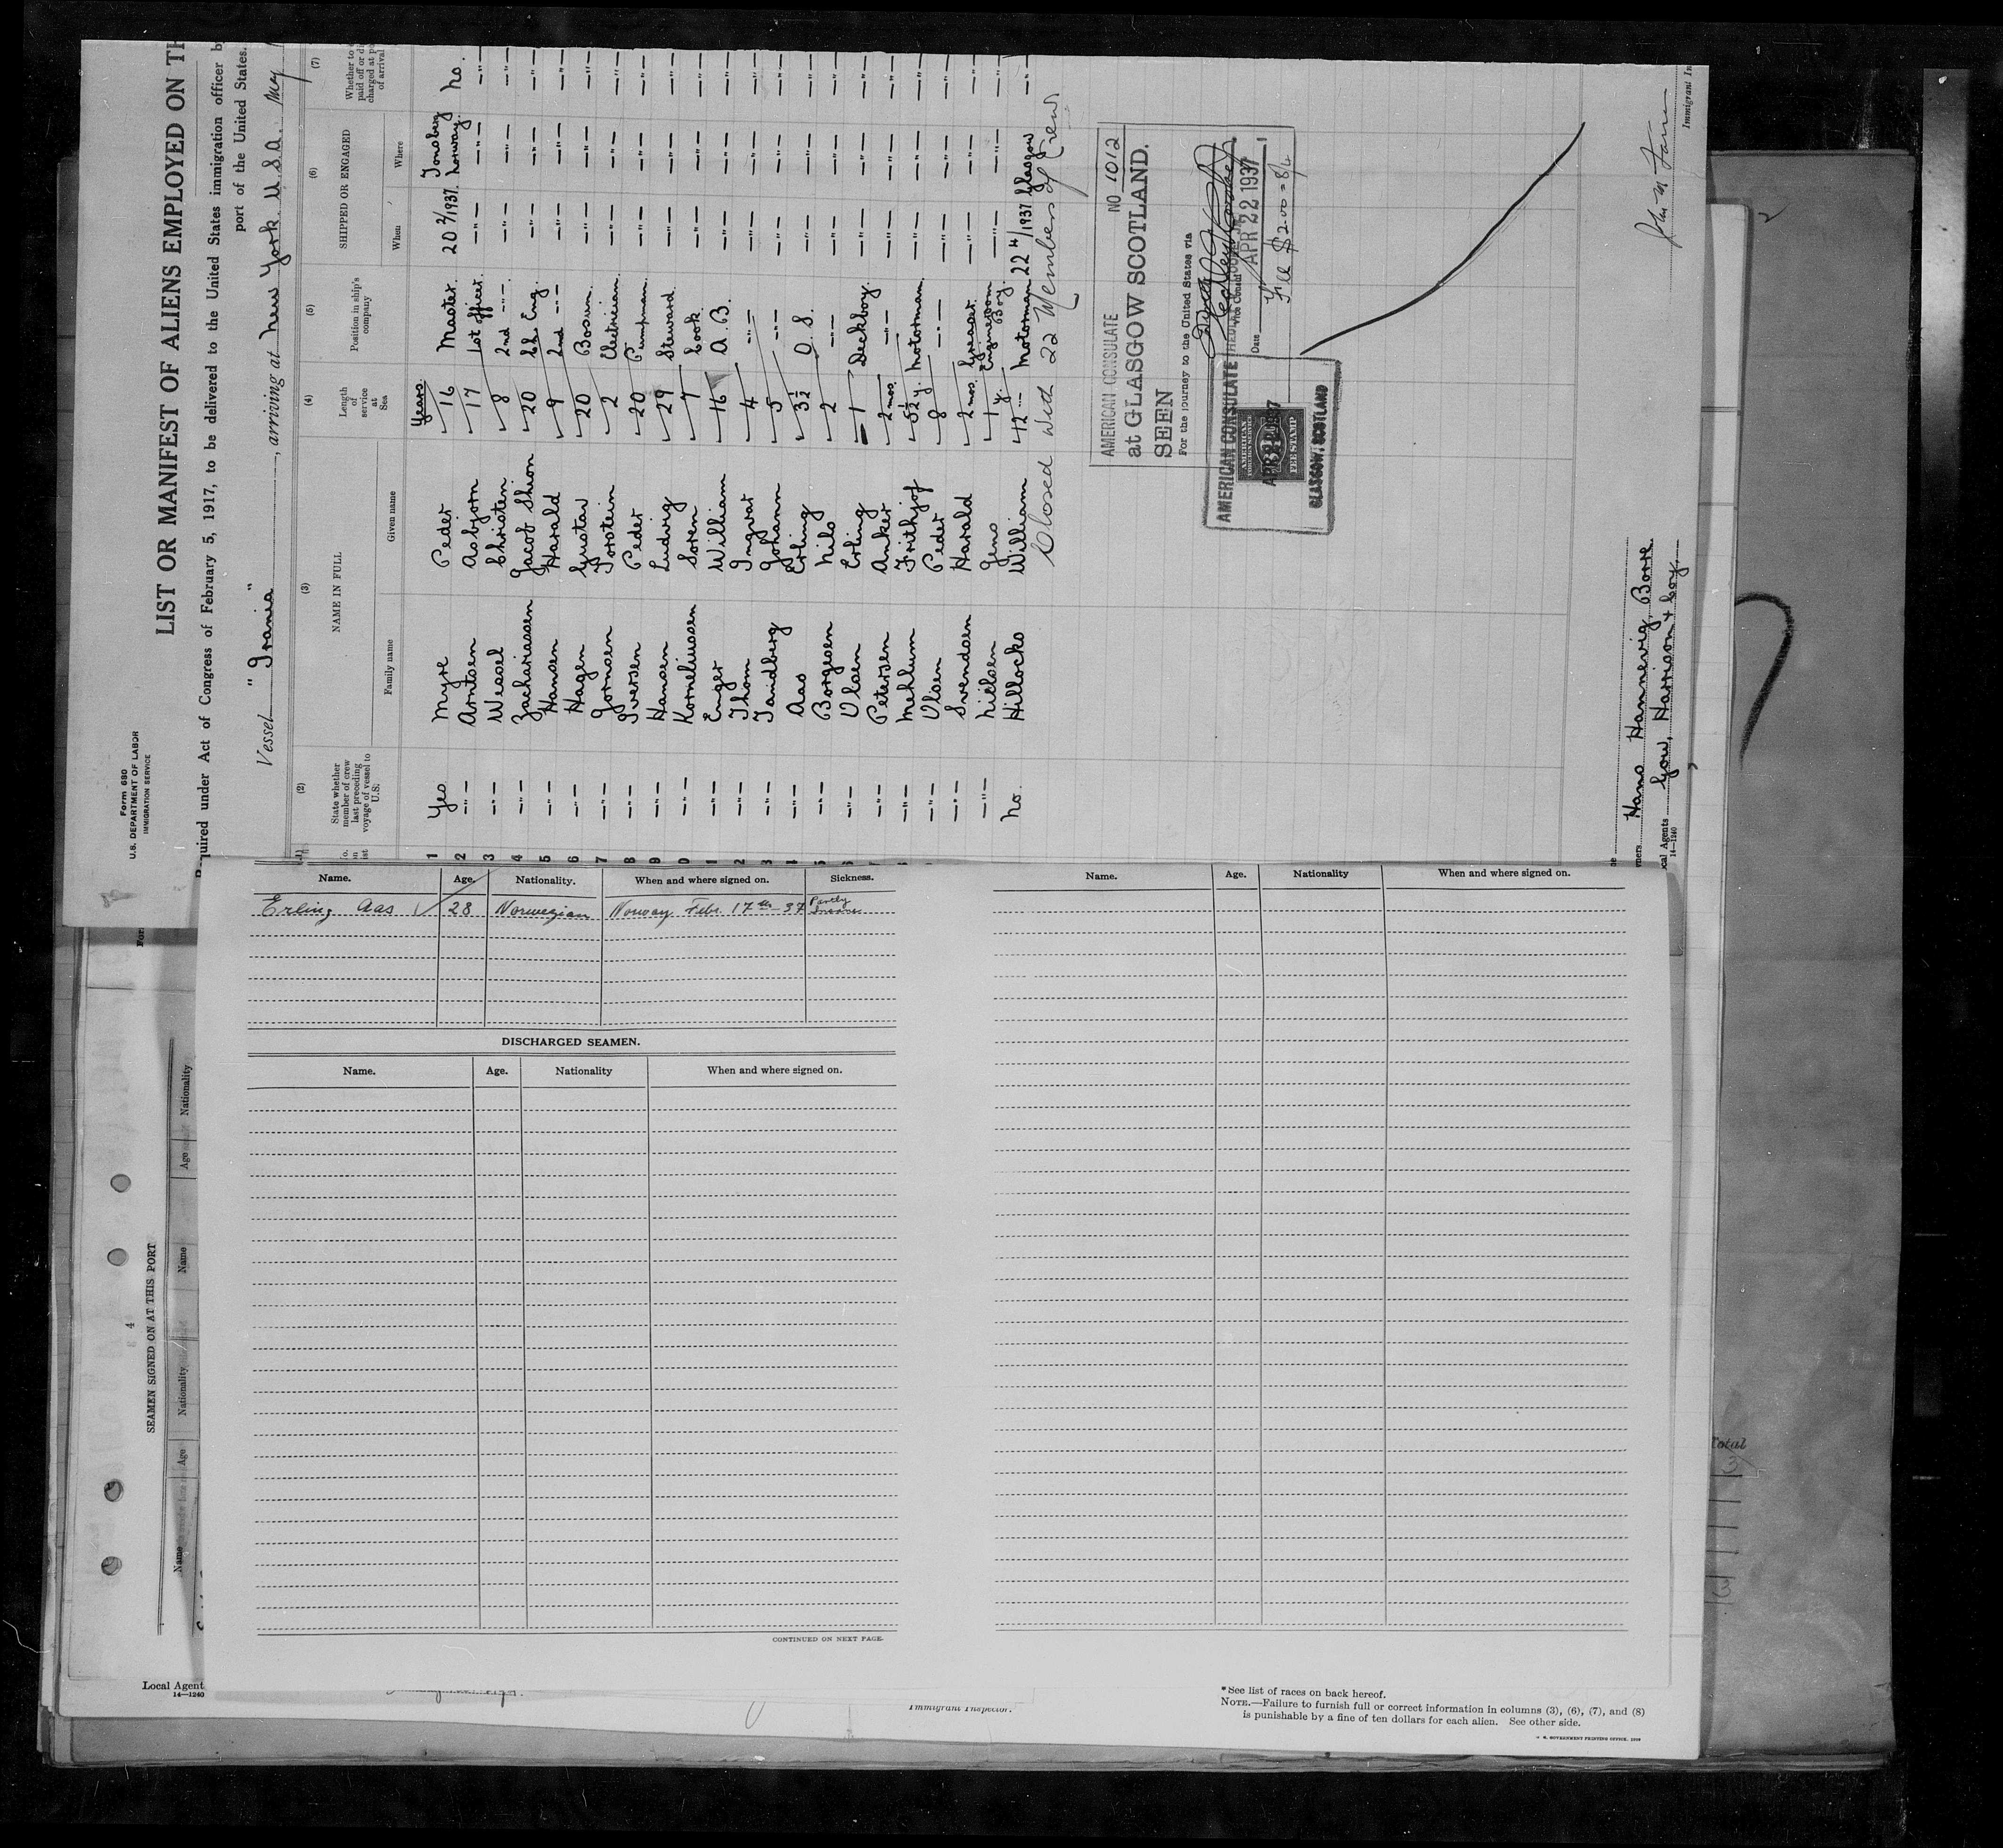 Form 680
U.S. DEPARTMENT OF LABOR
IMMIGRATION SERVICE
LIST OR MANIFEST OF ALIENS EMPLOYED ON TH
quired under Act of Congress of February 5, 1917, to be delivered to the United States immigration officer b
port of the United States.
Vessel "Irania", arriving at New York. U.S.A. May
(2) (3) (4) (5) (6) (7)
State whether member of crew last preceding voyage of vessel to U.S. NAME IN FULL Length of service at Sea Position in ship's company SHIPPED OR ENGAGED Whether to paid off or di charged at po of arrival
Family name Given name When Where
Years
1 Yes Myre Peder 16 Master. 20 2/1937. Tonsberg Norway. No.
2 —"— Arntsen Asbjorn 17 1st officer. —"— —"— —"—
3 —"— Wessel Christen 8 2nd —"— —"— —"— —"—
4 —"— Zachariassen Jacob Skion 20 Ch. Eng. —"— —"— —"—
5 —"— Hansen Harald 9 2nd —"— —"— —"— —"—
6 —"— Hagen Gustav 20 Bosun. —"— —"— —"—
7 —"— Gornsen Torstein 2 Electrician. —"— —"— —"—
8 —"— Iversen Peder 20 Pumpman. —"— —"— —"—
9 —"— Hansen Ludvig 29 Steward. —"— —"— —"—
0 —"— Korneliussen Soren 7 Cook. —"— —"— —"—
1 —"— Enger William 16 A.B. —"— —"— —"—
2 —"— Thom Ingvar 4 —"— —"— —"— —"—
3 —"— Tandberg Johann 5 —"— —"— —"— —"—
4 —"— Aas Erling 3½ O.S. —"— —"— —"—
5 —"— Borgesen Nils 2 —"— —"— —"— —"—
6 —"— Olsen Erling 1 Deckboy. —"— —"— —"—
7 —"— Petersen Anker 2 mos. —"— —"— —"— —"—
8 —"— Mehlum Frithjof 5½ y. Motorman. —"— —"— —"—
—"— Olsen Peder 8 —"— —"— —"— —"—
—"— Svendsen Harald 2 mos. Greaser. —"— —"— —"—
—"— Nielsen Jens 1 y. Engineroom Boy. —"— —"— —"—
No. Hillocks William 12 —"— Motorman 22 4/1937 Glasgow —"—
Closed with 22 Members of Crew
AMERICAN CONSULATE NO 1012
at GLASGOW SCOTLAND.
SEEN
For the journey to the United States via
Vice Consul
Date APR 22 1937
Fee $2.00 = 8/4
AMERICAN CONSULATE
AMERICAN
FOREIGN SERVICE
FEE STAMP
GLASGOW, SCOTLAND
Hans Hannevig. Borre.
cal Agents Gow, Harrison & Coy.
14—1240
Immigrant In
Name. Age. Nationality. When and where signed on. Sickness.
Erling Aas 28 Norwegian Norway Febr. 17th - 37 Partly Insane
DISCHARGED SEAMEN.
Name. Age. Nationality When and where signed on.
CONTINUED ON NEXT PAGE.
Name. Age. Nationality When and where signed on.
4
SEAMEN SIGNED ON AT THIS PORT
Name Age Nationality Name Age Nationality
Local Agent
14—1240
Immigrant Inspector.
*See list of races on back hereof.
NOTE.—Failure to furnish full or correct information in columns (3), (6), (7), and (8)
is punishable by a fine of ten dollars for each alien. See other side.
GOVERNMENT PRINTING OFFICE
Total
3